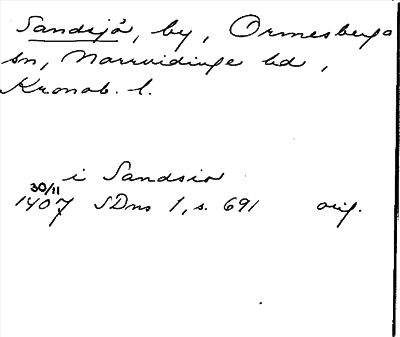 Sandsjö, by, Ormesberga
sn, Norrvidinge hd,
Kronob. l.
i Sandsio
30/11
1407 SDns 1, s. 691 orig.